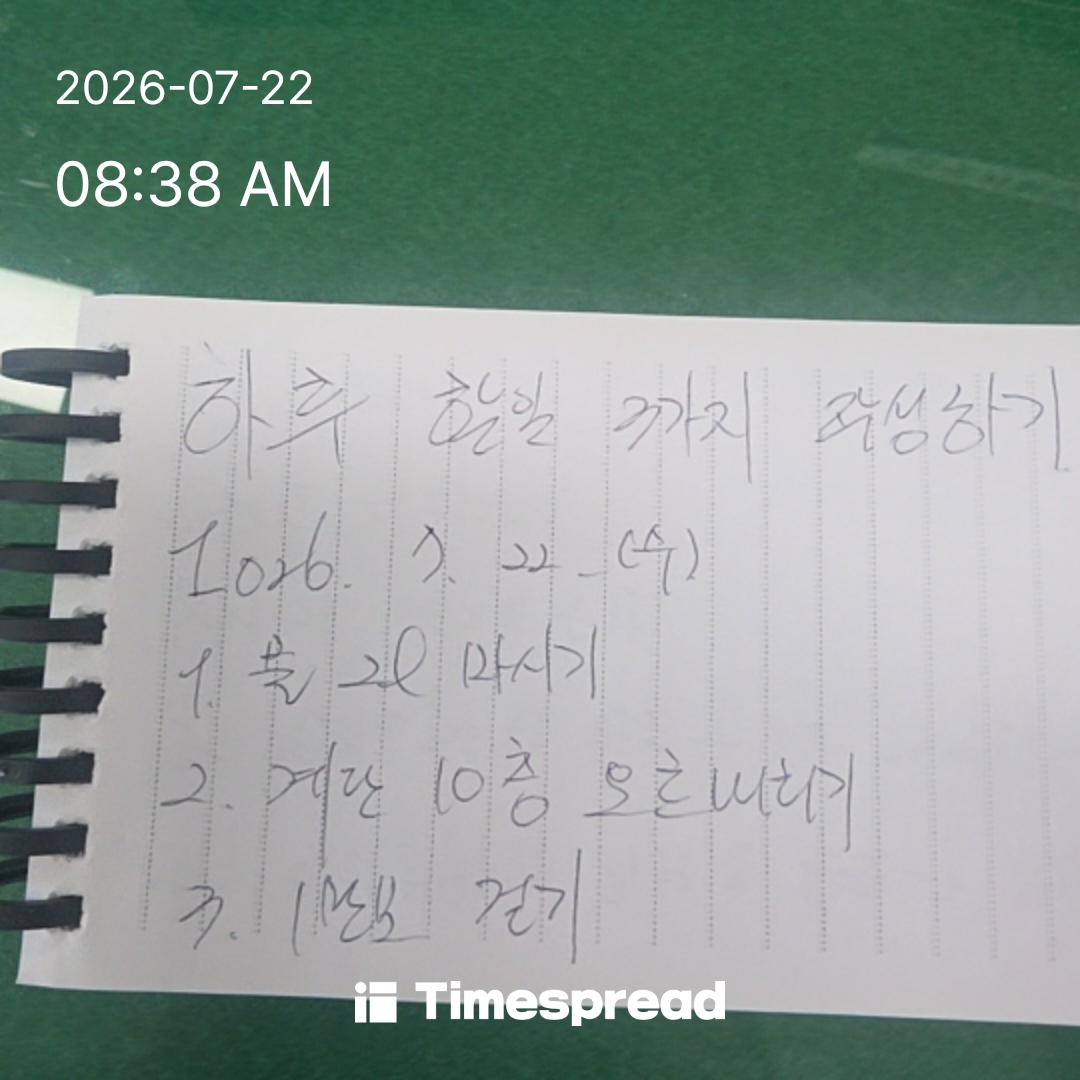 2026-07-22
08:38 AM
하루 한일 3가지 작성하기
2026. 7. 22. (수)
1. 물 2l 마시기
2. 계단 10층 오르내리기
3. 1만보 걷기
Timespread